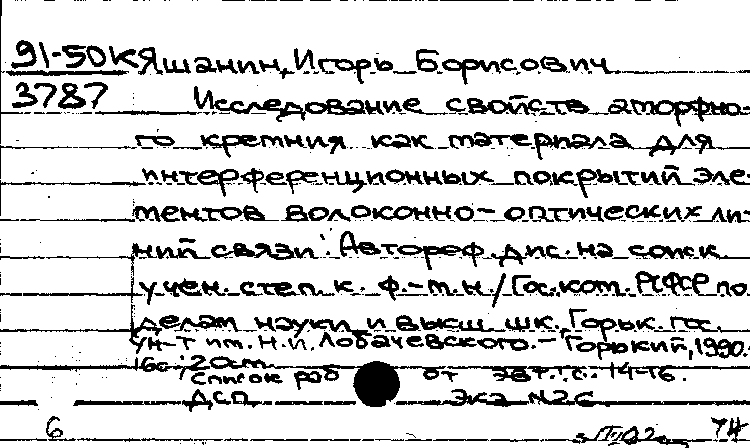 91-50К Яшанин, Игорь Борисович
3787 Исследование свойств аморфно-
го кремния как материала для
интерференционных покрытий эле-
ментов волоконно-оптических ли-
ний связи: Автореф. дис. на соиск.
учен. степ. к. ф.-м.н./Гос.ком. РСФСР по
делам науки и высш. шк. Горьк. гос.
ун-т им. Н.И. Лобачевского.- Горький, 1990.-
16с.; 20см.
Список раб от авт.: с. 14-16.
ДСП Экз N26
6 74